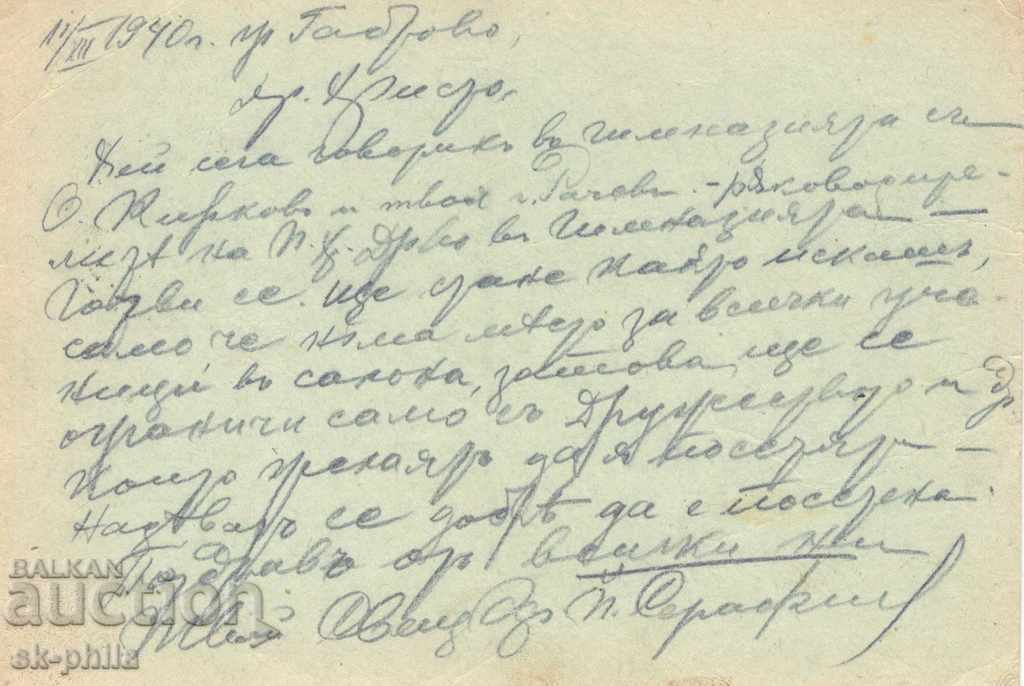 11/XII 1940 г. гр Габрово,
Др. Христо,
сега говорихъ въ гимназията съ
О. и твоя г. Рачевъ - ръководите-
литѣ на въ гимназията —
се. Ще стане както искашъ,
само че нѣма мѣсто за всички уче
ници въ салона, затова ще се
ограничи само съ Дружеството и др
които желаятъ да я посетятъ —
Надѣвамъ се добрѣ да е посетена.
Поздравъ отъ всички ни
Твой Свещ П. Серафим
BALKAN
auction
sk-phila